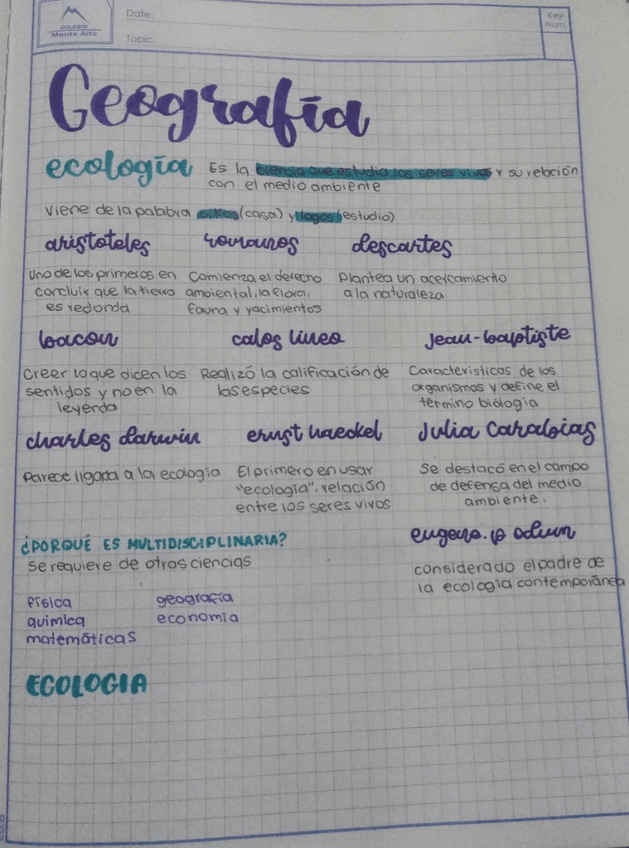 COLEGIO
Monte Alto
Date:
Topic:
Key
Num.
Geografía
ecología Es la ciencia que estudia los seres vivos y su relación
con el medio ambiente
viene de la palabra oikos (casa) y logos (estudio)
aristoteles romanos descartes
Uno de los primeros en comienza el derecho Plantea un acercamiento
concluir que la tierra ambiental, la flora, a la naturaleza
es redonda fauna y yacimientos
bacon calos lineo jean-baptiste
Creer lo que dicen los Realizó la calificación de Caracteristicos de los
sentidos y no en la las especies organismos y define el
leyenda término biologia
charles darwin ernst haeckel Julia Carabias
Parece ligada a la ecologia El primero en usar Se destacó en el campo
"ecología", relación de defensa del medio
entre los seres vivos ambiente.
eugene. p odum
¿PORQUÉ ES MULTIDISCIPLINARIA?
Se requiere de otras ciencias considerado el padre de
la ecologia contemporánea
física geografía
quimica economía
matemáticas
ECOLOGIA